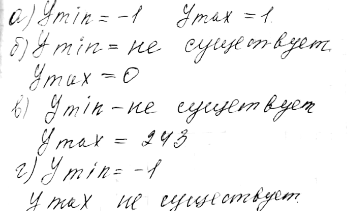 а) Ymin = -1 Ymax = 1
б) Ymin = не существует.
Ymax = 0
в) Ymin - не существует
Ymax = 243
г) Ymin = -1
Ymax не существует.